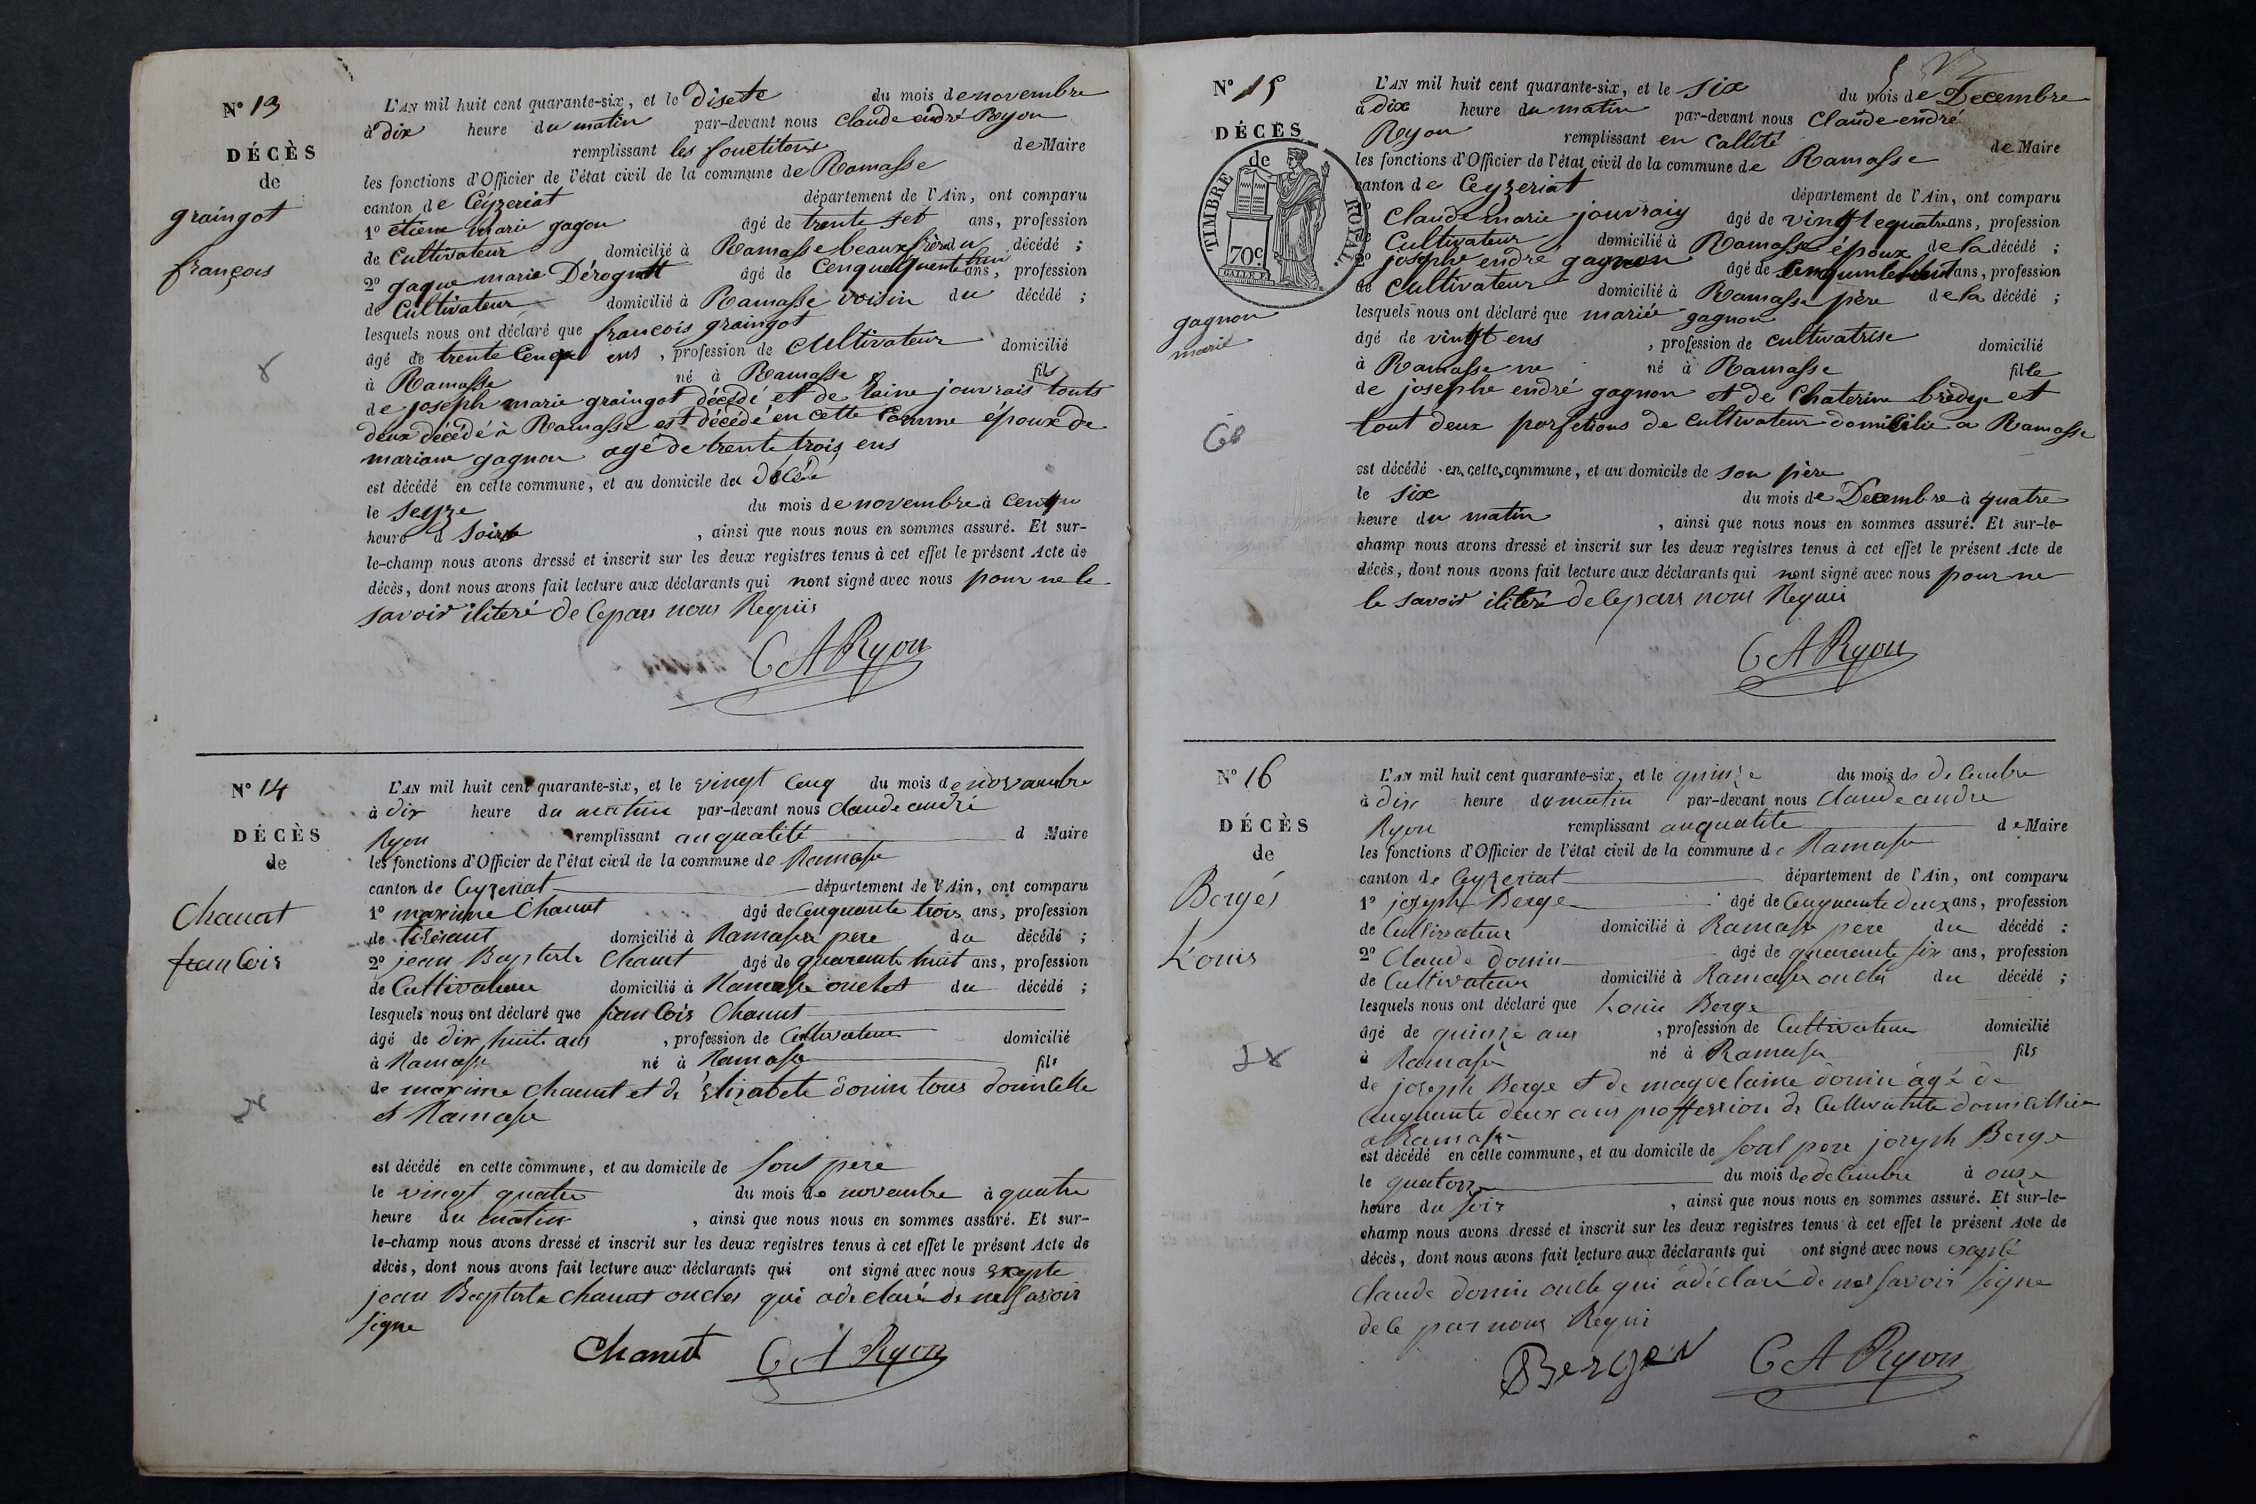 N° 13
DÉCÈS
de
graingot
françois
L'AN mil huit cent quarante-six, et le disete du mois de novembre
à dix heure du matin par-devant nous Claude endré Ryon
remplissant les fonctitons de Maire
les fonctions d'Officier de l'état civil de la commune de Ramasse
canton de Ceyzeriat département de l'Ain, ont comparu
1° étiene marie gagon âgé de trente set ans, profession
de Cultivateur domicilié à Ramasse beaux frère du décédé ;
2° marie Dérognat âgé de ans, profession
de Cultivateur domicilié à Ramasse voisin du décédé ;
lesquels nous ont déclaré que françois graingot
âgé de trente Cenq ens , profession de Cultivateur domicilié
à Ramasse né à Ramasse fils
de joseph marie graingot décédé et de jouvrais touts
deux décédé à Ramasse est décédé en cette Comune époux de
mariane gagnon agé de trente trois ens
est décédé en cette commune, et au domicile du décédé
le seyze du mois de novembre à cenq
heure d soire , ainsi que nous nous en sommes assuré. Et sur-
le-champ nous avons dressé et inscrit sur les deux registres tenus à cet effet le présent Acte de
décès, dont nous avons fait lecture aux déclarants qui nont signé avec nous pour ne le
savoir iliteré de Cepars nous Requis
C A Ryon
N° 14
DÉCÈS
de
Chanut
francois
L'AN mil huit cent quarante-six, et le vingt Cenq du mois de novambre
à dix heure du matin par-devant nous claude andré
Ryon remplissant auqualité d Maire
les fonctions d'Officier de l'état civil de la commune de Ramasse
canton de Ceyzeriat département de l'Ain, ont comparu
1° maxime Chanut âgé de Cenquante trois ans, profession
de domicilié à Ramasse pere du décédé ;
2° jean Baptiste Chanut âgé de quarante huit ans, profession
de Cultivateur domicilié à Ramasse oncles du décédé ;
lesquels nous ont déclaré que francois Chanut
âgé de dix huit ans , profession de Cultivateur domicilié
à Ramasse né à Ramasse fils
de maxime Chanut et de Elizabete donin tous domicilie
à Ramasse
est décédé en cette commune, et au domicile de sont pere
le vingt quatre du mois de novembre à quatre
heure du matin , ainsi que nous nous en sommes assuré. Et sur-
le-champ nous avons dressé et inscrit sur les deux registres tenus à cet effet le présent Acte de
décès, dont nous avons fait lecture aux déclarants qui ont signé avec nous exepte
jean Baptiste chanut oncles qui adeclaré de ne savoir
signe
Chanut C A Ryon
N° 15
DÉCÈS
de
TIMBRE ROYAL.
70c
gagnon
marie
L'AN mil huit cent quarante-six, et le six du mois de Decembre
à dix heure du matin par-devant nous Claude endré
Ryon remplissant en Callité de Maire
les fonctions d'Officier de l'état civil de la commune de Ramasse
canton de Ceyzeriat département de l'Ain, ont comparu
1° Claude marie jouvray âgé de vingt equatre ans, profession
de Cultivateur domicilié à Ramasse époux de la décédé ;
2° josephe endré gagnon âgé de ans, profession
de Cultivateur domicilié à Ramasse père de la décédé ;
lesquels nous ont déclaré que marie gagnon
âgé de vingt ens , profession de cultivatrise domicilié
à Ramasse ne né à Ramasse fille
de josephe endré gagnon et de Chaterine et
tout deux de cultivateur domicilie a Ramasse
est décédé en cette commune, et au domicile de son père
le six du mois de Decembre à quatre
heure du matin , ainsi que nous nous en sommes assuré. Et sur-le-
champ nous avons dressé et inscrit sur les deux registres tenus à cet effet le présent Acte de
décès, dont nous avons fait lecture aux déclarants qui nont signé avec nous pour ne
le savoir iliteré de lepars nous Requis
C A Ryon
N° 16
DÉCÈS
de
Bergés
Louis
L'AN mil huit cent quarante-six, et le quinze du mois de decembre
à dix heure du matin par-devant nous Claude andre
Ryon remplissant auqualite de Maire
les fonctions d'Officier de l'état civil de la commune de Ramasse
canton de Ceyzeriat département de l'Ain, ont comparu
1° joseph Berge âgé de Cenquante deux ans, profession
de Cultivateur domicilié à Ramasse pere du décédé ;
2° Claude donin âgé de quarante six ans, profession
de Cultivateur domicilié à Ramasse oncle du décédé ;
lesquels nous ont déclaré que Louis Berge
âgé de quinze ans , profession de Cultivateur domicilié
à Ramasse né à Ramasse fils
de joseph Berge et de maguelaine donin agé de
Cenquante deux ans proffession de domicillie
a Ramasse
est décédé en cette commune, et au domicile de sont pere joseph Berge
le quatorze du mois de decembre à onze
heure du soir , ainsi que nous nous en sommes assuré. Et sur-le-
champ nous avons dressé et inscrit sur les deux registres tenus à cet effet le présent Acte de
décès, dont nous avons fait lecture aux déclarants qui ont signé avec nous exepté
claude donin oncle qui adéclaré de ne savoir signe
de le par nous Requi
Berger C A Ryon